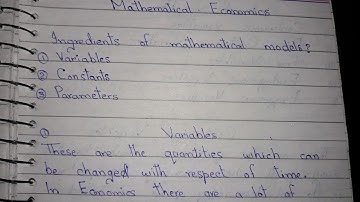 Mathematical Economics
Ingredients of mathematical models?
① Variables
② Constants
③ Parameters
① Variables
These are the quantities which can
be changed with respect of time.
In Economics there are a lot of